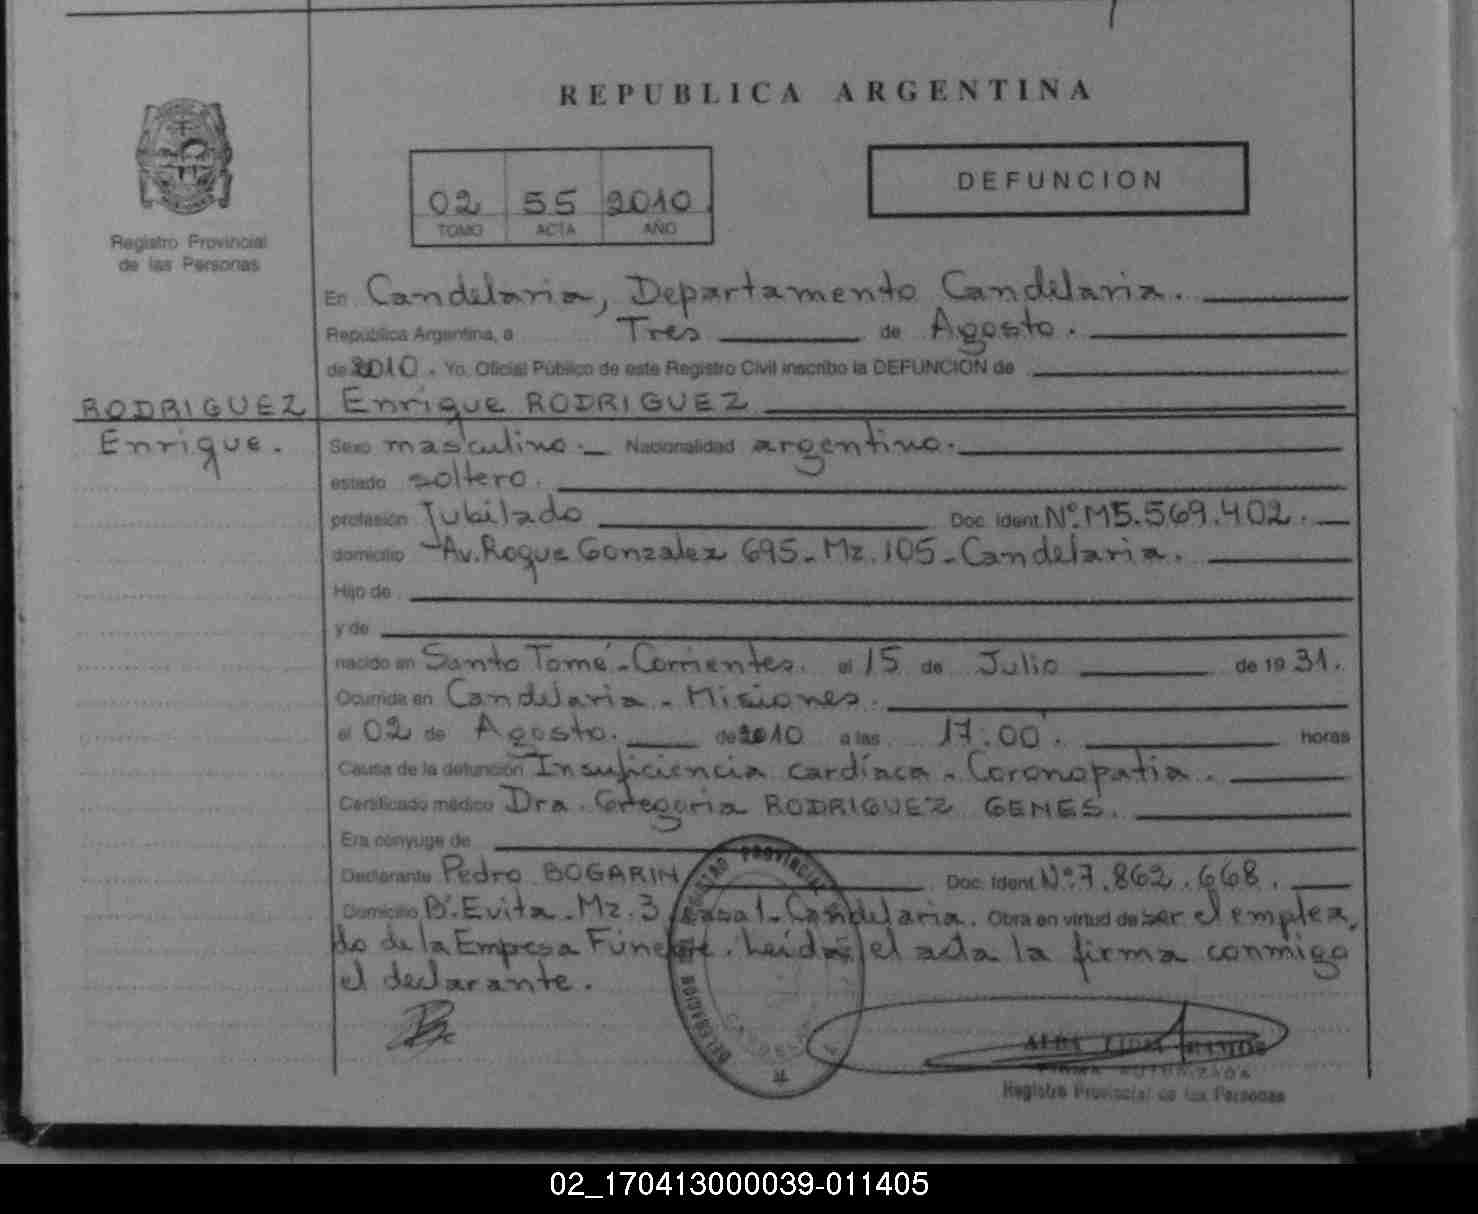 REPUBLICA ARGENTINA
02 55 2010
TOMO ACTA AÑO
DEFUNCION
Registro Provincial
de las Personas
En Candelaria, Departamento Candelaria.
República Argentina, a Tres de Agosto.
de 2010. Yo, Oficial Público de este Registro Civil inscribo la DEFUNCION de
RODRIGUEZ Enrique RODRIGUEZ
Enrique.
Sexo masculino. Nacionalidad argentino.
estado soltero.
profesión Jubilado Doc. Ident. Nº. M5.569.402.
domicilio Av. Roque Gonzalez 695 - Mz. 105 - Candelaria.
Hijo de
y de
nacido en Santo Tomé - Corrientes. el 15 de Julio de 19 31.
Ocurrida en Candelaria - Misiones.
el 02 de Agosto. de 2010 a las 17:00'. horas
Causa de la defunción Insuficiencia cardíaca - Coronopatia.
Certificado médico Dra. Gregoria RODRIGUEZ GENES.
Era cónyuge de
Declarante Pedro BOGARIN Doc. Ident. Nº. 7.862.668.
Domicilio Bº. Evita - Mz. 3 Casa 1 - Candelaria. Obra en virtud de ser el emplea
do de la Empresa Fúnebre. Leída el acta la firma conmigo
el declarante.
REGISTRO PROVINCIAL
DELEGACION
FIRMA AUTORIZADA
Registro Provincial de las Personas
02_170413000039-011405